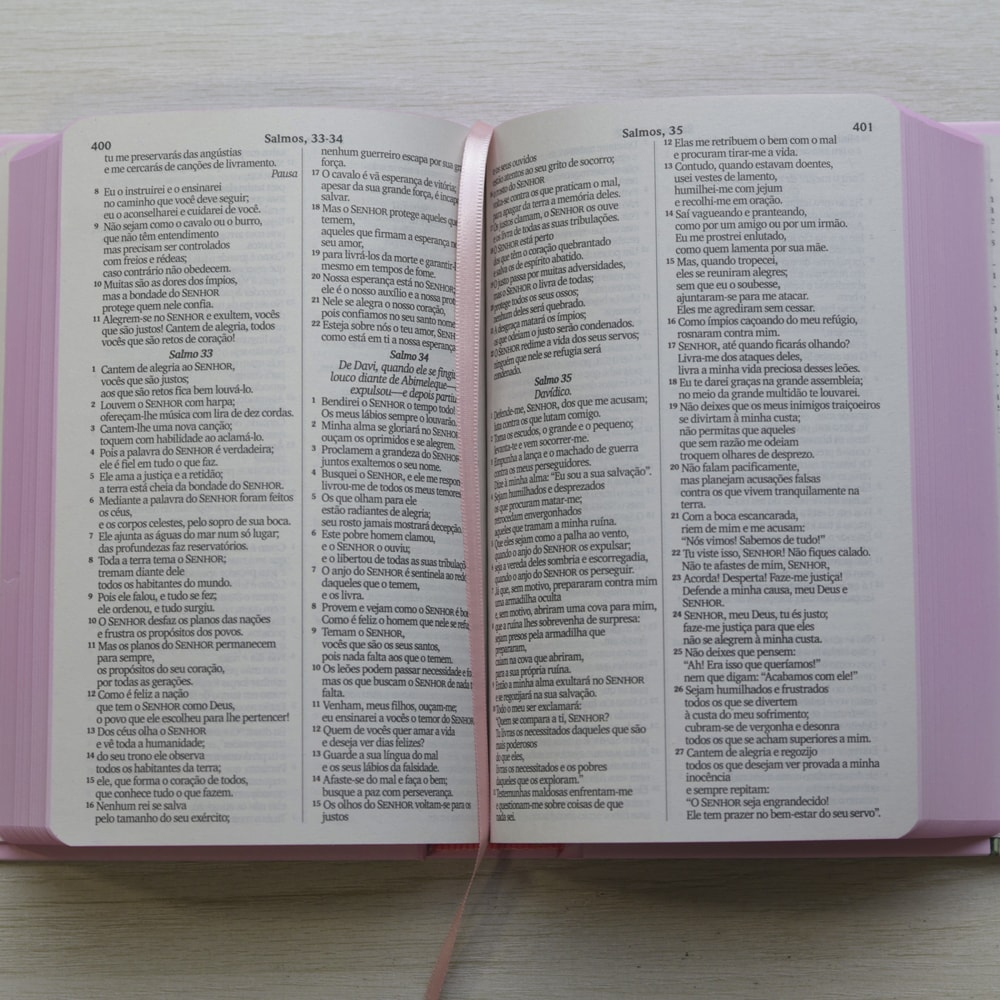 400
Salmos, 33-34
tu me preservarás das angústias
e me cercarás de canções de livramento.
Pausa
8 Eu o instruirei e o ensinarei
no caminho que você deve seguir;
eu o aconselharei e cuidarei de você.
9 Não sejam como o cavalo ou o burro,
que não têm entendimento
mas precisam ser controlados
com freios e rédeas;
caso contrário não obedecem.
10 Muitas são as dores dos ímpios,
mas a bondade do SENHOR
protege quem nele confia.
11 Alegrem-se no SENHOR e exultem, vocês
que são justos! Cantem de alegria, todos
vocês que são retos de coração!
Salmo 33
1 Cantem de alegria ao SENHOR,
vocês que são justos;
aos que são retos fica bem louvá-lo.
2 Louvem o SENHOR com harpa;
ofereçam-lhe música com lira de dez cordas.
3 Cantem-lhe uma nova canção;
toquem com habilidade ao aclamá-lo.
4 Pois a palavra do SENHOR é verdadeira;
ele é fiel em tudo o que faz.
5 Ele ama a justiça e a retidão;
a terra está cheia da bondade do SENHOR.
6 Mediante a palavra do SENHOR foram feitos
os céus,
e os corpos celestes, pelo sopro de sua boca.
7 Ele ajunta as águas do mar num só lugar;
das profundezas faz reservatórios.
8 Toda a terra tema o SENHOR;
tremam diante dele
todos os habitantes do mundo.
9 Pois ele falou, e tudo se fez;
ele ordenou, e tudo surgiu.
10 O SENHOR desfaz os planos das nações
e frustra os propósitos dos povos.
11 Mas os planos do SENHOR permanecem
para sempre,
os propósitos do seu coração,
por todas as gerações.
12 Como é feliz a nação
que tem o SENHOR como Deus,
o povo que ele escolheu para lhe pertencer!
13 Dos céus olha o SENHOR
e vê toda a humanidade;
14 do seu trono ele observa
todos os habitantes da terra;
15 ele, que forma o coração de todos,
que conhece tudo o que fazem.
16 Nenhum rei se salva
pelo tamanho do seu exército;
nenhum guerreiro escapa por sua
força.
17 O cavalo é vã esperança de vitória;
apesar da sua grande força, é
salvar.
18 Mas o SENHOR protege aqueles
temem,
aqueles que firmam a esperança
seu amor,
19 para livrá-los da morte e
mesmo em tempos de fome.
20 Nossa esperança está no SENHOR;
ele é o nosso auxílio e a nossa
21 Nele se alegra o nosso coração,
pois confiamos no seu santo nome.
22 Esteja sobre nós o teu amor,
como está em ti a nossa esperança.
Salmo 34
De Davi, quando ele se
louco diante de Abimeleque—
expulsou—e depois
1 Bendirei o SENHOR o tempo todo!
Os meus lábios sempre o louvarão.
2 Minha alma se gloriará no SENHOR
ouçam os oprimidos e se alegrem.
3 Proclamem a grandeza do SENHOR
juntos exaltemos o seu nome.
4 Busquei o SENHOR, e ele me
livrou-me de todos os meus temores.
5 Os que olham para ele
estão radiantes de alegria;
seu rosto jamais mostrará decepção.
6 Este pobre homem clamou,
e o SENHOR o ouviu;
e o libertou de todas as suas
7 O anjo do SENHOR é sentinela ao
daqueles que o temem,
e os livra.
8 Provem e vejam como o SENHOR é
Como é feliz o homem que nele se
9 Temam o SENHOR,
vocês que são os seus santos,
pois nada falta aos que o temem.
10 Os leões podem passar necessidade e
mas os que buscam o SENHOR de nada
falta.
11 Venham, meus filhos, ouçam-me;
eu ensinarei a vocês o temor do SENHOR.
12 Quem de vocês quer amar a vida
e deseja ver dias felizes?
13 Guarde a sua língua do mal
e os seus lábios da falsidade.
14 Afaste-se do mal e faça o bem;
busque a paz com perseverança.
15 Os olhos do SENHOR voltam-se para os
justos
Salmos, 35
401
e os seus ouvidos
estão atentos ao seu grito de socorro;
rosto do SENHOR
contra os que praticam o mal,
para apagar da terra a memória deles.
justos clamam, o SENHOR os ouve
e os livra de todas as suas tribulações.
O SENHOR está perto
dos que têm o coração quebrantado
e salva os de espírito abatido.
O justo passa por muitas adversidades,
mas o SENHOR o livra de todas;
protege todos os seus ossos;
nenhum deles será quebrado.
A desgraça matará os ímpios;
os que odeiam o justo serão condenados.
O SENHOR redime a vida dos seus servos;
ninguém que nele se refugia será
condenado.
Salmo 35
Davídico.
Defende-me, SENHOR, dos que me acusam;
luta contra os que lutam comigo.
Toma os escudos, o grande e o pequeno;
levanta-te e vem socorrer-me.
Empunha a lança e o machado de guerra
contra os meus perseguidores.
Dize à minha alma: “Eu sou a sua salvação”.
Sejam humilhados e desprezados
os que procuram matar-me;
retrocedam envergonhados
aqueles que tramam a minha ruína.
Que eles sejam como a palha ao vento,
quando o anjo do SENHOR os expulsar;
seja a vereda deles sombria e escorregadia,
quando o anjo do SENHOR os perseguir.
Já que, sem motivo, prepararam contra mim
uma armadilha oculta
e, sem motivo, abriram uma cova para mim,
que a ruína lhes sobrevenha de surpresa:
sejam presos pela armadilha que
prepararam,
caiam na cova que abriram,
para a sua própria ruína.
Então a minha alma exultará no SENHOR
e se regozijará na sua salvação.
Todo o meu ser exclamará:
“Quem se compara a ti, SENHOR?
Tu livras os necessitados daqueles que são
mais poderosos
do que eles,
livras os necessitados e os pobres
daqueles que os exploram.”
Testemunhas maldosas enfrentam-me
e questionam-me sobre coisas de que
nada sei.
12 Elas me retribuem o bem com o mal
e procuram tirar-me a vida.
13 Contudo, quando estavam doentes,
usei vestes de lamento,
humilhei-me com jejum
e recolhi-me em oração.
14 Saí vagueando e pranteando,
como por um amigo ou por um irmão.
Eu me prostrei enlutado,
como quem lamenta por sua mãe.
15 Mas, quando tropecei,
eles se reuniram alegres;
sem que eu o soubesse,
ajuntaram-se para me atacar.
Eles me agrediram sem cessar.
16 Como ímpios caçoando do meu refúgio,
rosnaram contra mim.
17 SENHOR, até quando ficarás olhando?
Livra-me dos ataques deles,
livra a minha vida preciosa desses leões.
18 Eu te darei graças na grande assembleia;
no meio da grande multidão te louvarei.
19 Não deixes que os meus inimigos traiçoeiros
se divirtam à minha custa;
não permitas que aqueles
que sem razão me odeiam
troquem olhares de desprezo.
20 Não falam pacificamente,
mas planejam acusações falsas
contra os que vivem tranquilamente na
terra.
21 Com a boca escancarada,
riem de mim e me acusam:
“Nós vimos! Sabemos de tudo!”
22 Tu viste isso, SENHOR! Não fiques calado.
Não te afastes de mim, SENHOR,
23 Acorda! Desperta! Faze-me justiça!
Defende a minha causa, meu Deus e
SENHOR.
24 SENHOR, meu Deus, tu és justo;
faze-me justiça para que eles
não se alegrem à minha custa.
25 Não deixes que pensem:
“Ah! Era isso que queríamos!”
nem que digam: “Acabamos com ele!”
26 Sejam humilhados e frustrados
todos os que se divertem
à custa do meu sofrimento;
cubram-se de vergonha e desonra
todos os que se acham superiores a mim.
27 Cantem de alegria e regozijo
todos os que desejam ver provada a minha
inocência
e sempre repitam:
“O SENHOR seja engrandecido!
Ele tem prazer no bem-estar do seu servo”.